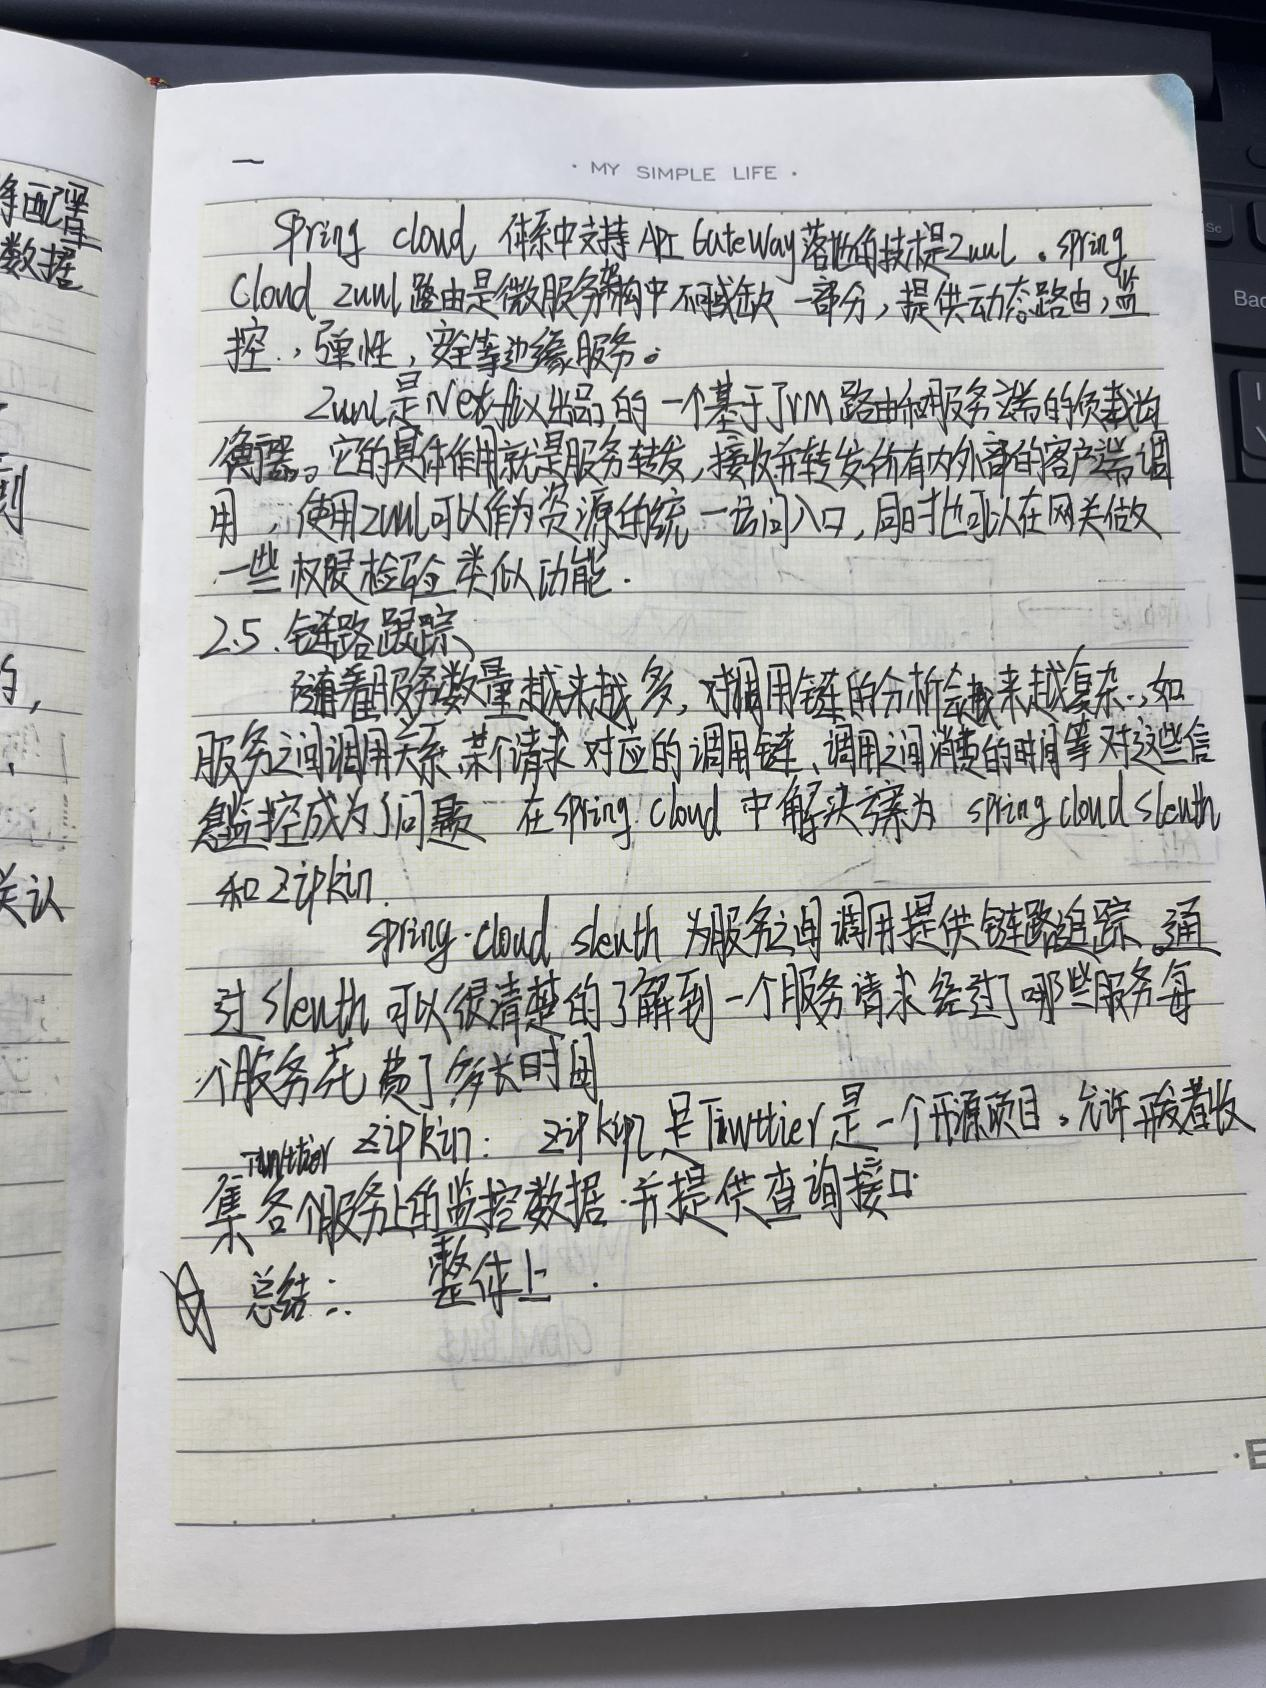 等配置
数据
则
的,
关认
一
· MY SIMPLE LIFE ·
Spring cloud 体系中支持API GateWay落地的技术是Zuul。spring
Cloud Zuul路由是微服务架构中不可或缺的一部分,提供动态路由,监
控,弹性,安全等边缘服务。
Zuul是Netflix出品的一个基于JVM路由和服务端的负载均
衡器。它的具体作用就是服务转发,接收并转发所有内外部的客户端调
用,使用zuul可以作为资源的统一访问入口,同时也可以在网关做
一些权限检验类似功能.
2.5.链路跟踪
随着服务数量越来越多,对调用链的分析会越来越复杂,如
服务之间调用关系、某个请求对应的调用链、调用之间消费的时间等对这些信
息监控成为了问题 在spring cloud中解决方案为 spring cloud sleuth
和Zipkin.
spring·cloud sleuth 为服务之间调用提供链路追踪。通
过sleuth可以很清楚的了解到一个服务请求经过了哪些服务每
个服务花费了多长时间
Zipkin: Zipkin 是Twttier是一个开源项目。允许开发者收
集各个服务上的监控数据·并提供查询接口·
总结: 整体上
Sc
Bac